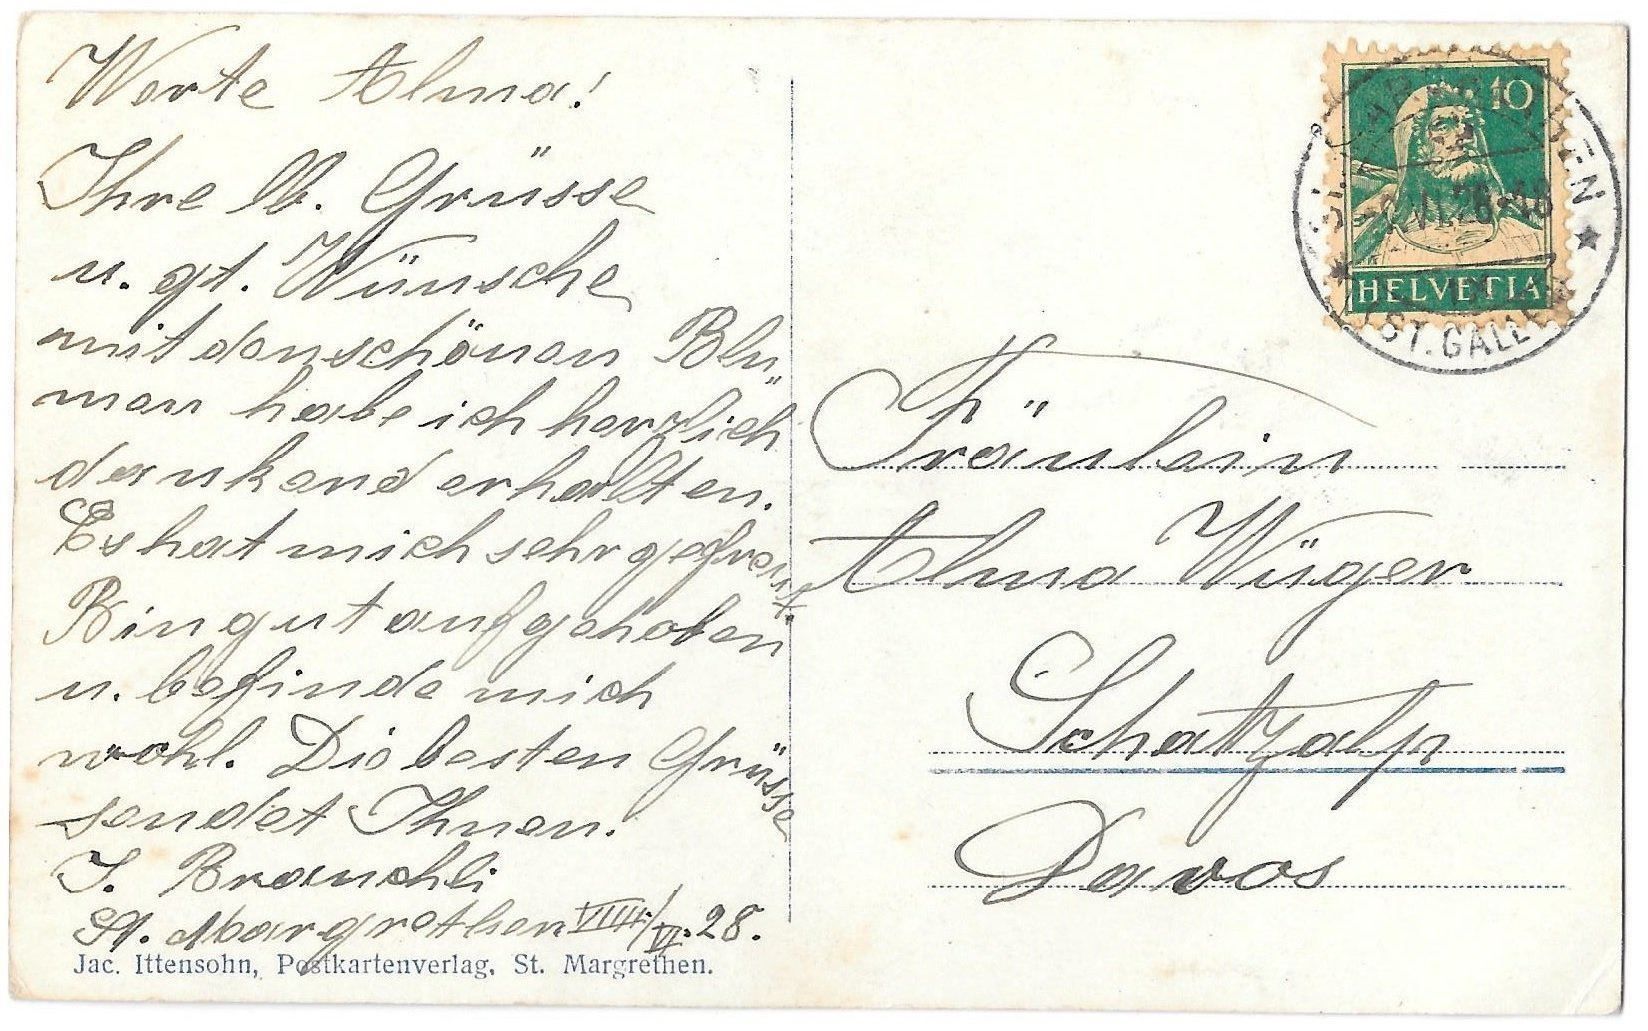 Werte Alma!
Ihre lb. Grüsse
u. gt. Wünsche
mit den schönen Blu"
men habe ich herzlich
dankend erhalten.
Es hat mich sehr gefreut.
Bin gut aufgehoben
u. befinde mich
wohl. Die besten Grüsse
sendet Ihnen.
J. Brauchli
St. Margrethen VIIII./VI. 28.
Jac. Ittensohn, Postkartenverlag, St. Margrethen.
10
HELVETIA
ST. GALLEN
Fräulein
Alma Wüger
Schatzalp
Davos